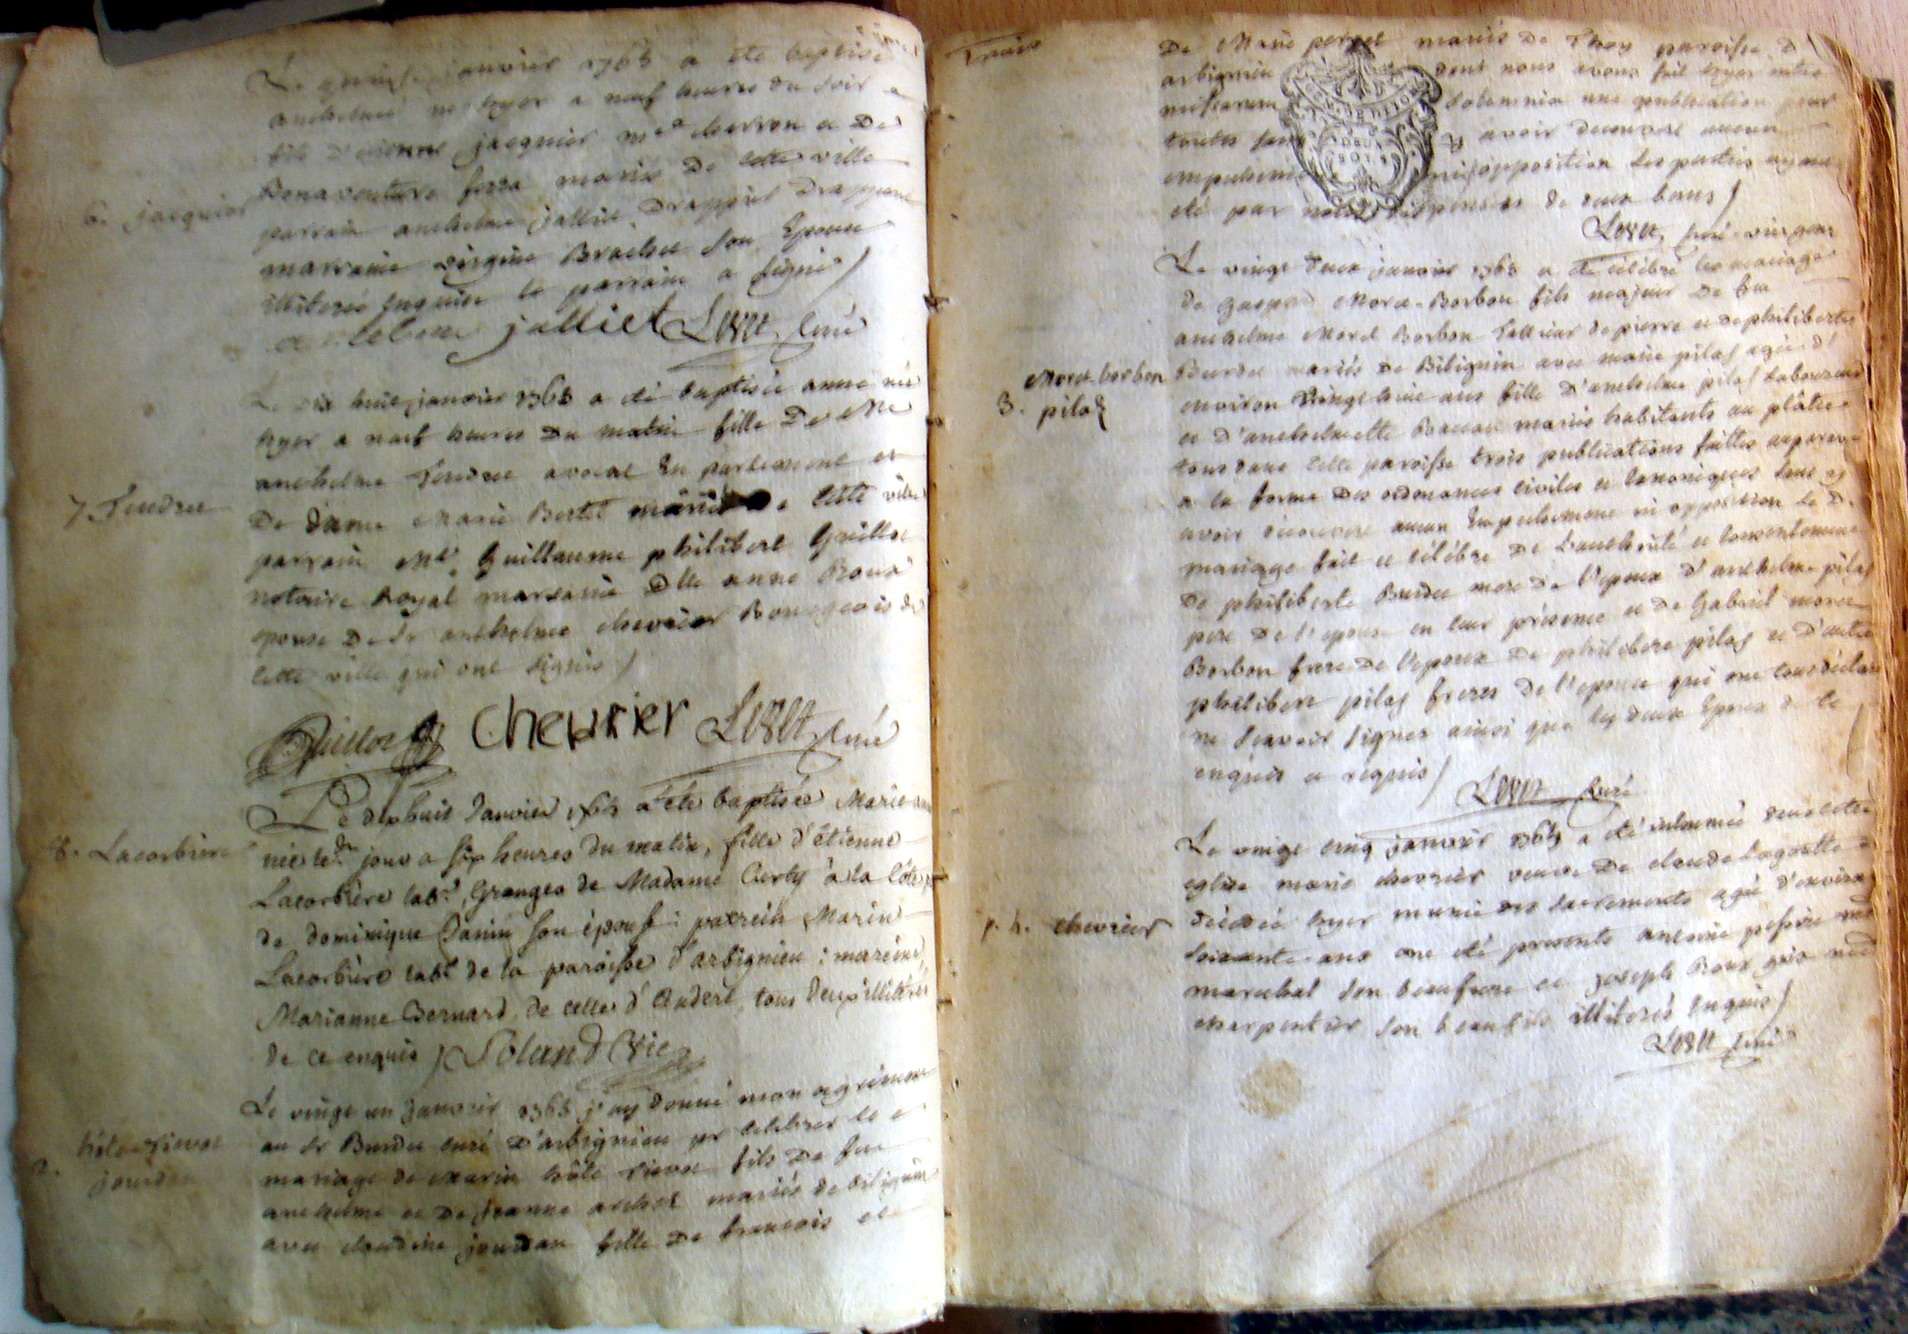 Le quinze janvier 1763 a été baptisé
anthelme né hyer a neuf heures du soir
fils d'etienne jacquier me charron et De
6. jacquier
Bonaventure ferra mariés de cette ville
parrain anthelme jalliet Drappier
marraine virginie Brachet son Epouse
illiterée Enquise le parrain a signé /
jalliet Levet curé
Le dix huit janvier 1763 a été baptisée anne née
hyer a neuf heures Du matin fille De Me
anthelme Tendret avocat En parlement et
7 Tendret
De dame Marie Bertet mariés de cette ville
parrain Me Guillaume philibert Guillot
notaire Royal marraine Dlle anne Roux
epouse De Sr anthelme chevrier Bourgeois de
cette ville qui ont signés /
Guillot Chevrier Levet curé
Le dixhuit Janvier 1763 a été baptisée Marie
née le dit jour a six heures du matin, fille d'étienne
8. Lacorbière
Lacorbière labr. Granger de Madame Curty à la Côte
de dominique Janin son épouse : parrein Marin
Lacorbière labr de la paroisse d'arbignieu : mareine
Marianne Bernard de celle d'Andert, tous deux illitérés
de ce enquis / Soland vic
Le vingt un Janvier 1763 j'ay donné mon agrément
au Sr Burdet curé D'arbignieu pr celebrer le
2. hôte-rievot
jourdan
mariage de Marin hôte rievot fils De feu
anthelme et De jeanne arthod mariés de Bilignin
avec claudine jourdan fille De francois et
De Marie pernet mariés De Thoy paroisse D
arbignieu dont nous avons fait hyer intra
missarum solemnia une publication pour
toutes sans y avoir decouvert aucun
empechement ni opposition les parties ayant
été par nous dispensées de deux bans /
Levet curé
GENERALITE
DEUX
SOLS
Le vingt deux janvier 1763 a été célébré le mariage
de Gaspard Morel-Borbon fils majeur De feu
anthelme Morel Borbon Tailleur de pierre et de philiberte
3. Morel-borbon
pilaz
Burdet mariés De Bilignin avec marie pilaz agée d'
environ vingt huit ans fille d'anthelme pilaz laboureur
et d'anthelmette mariés habitants au plâtre
tous dans cette paroisse trois publications faittes auparavant
a la forme Des ordonnances civiles et canoniques sans y
avoir découvert aucun Empechement ni opposition le D.
mariage fait et célébré De l'authorité et consentement
De philiberte Burdet mere de l'epoux d'anthelme pilaz
pere De l'epouse en leur présence et de Gabriel morel
Borbon frere De l'epoux De philibert pilaz et d'autre
philibert pilaz freres De l'epouse qui ont tous déclaré
ne sçavoir signer ainsi que les deux Epoux de ce
enquis et requis /
Levet curé
Le vingt cinq janvier 1763 a été inhumée dans cette
eglise marie chevrier veuve De claude Lagoutte
p. 4. chevrier
décédée hyer munie des sacrements agée d'environ
soixante ans ont été presents antoine
marechal son beaufrere et joseph Roux
charpentier son beaufils illiterés Enquis /
Levet curé